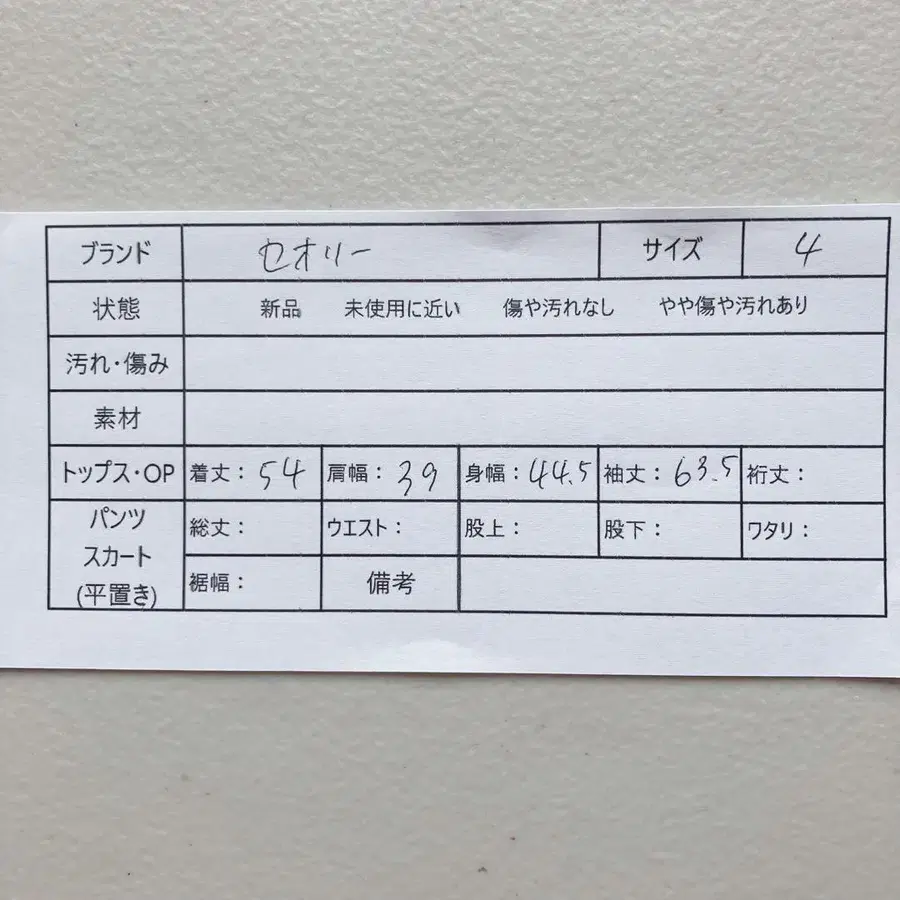 ブランド セオリー サイズ 4
状態 新品 未使用に近い 傷や汚れなし やや傷や汚れあり
汚れ・傷み
素材
トップス・OP 着丈: 54 肩幅: 39 身幅: 44.5 袖丈: 63.5 裄丈:
パンツ スカート (平置き) 総丈: ウエスト: 股上: 股下: ワタリ:
裾幅: 備考